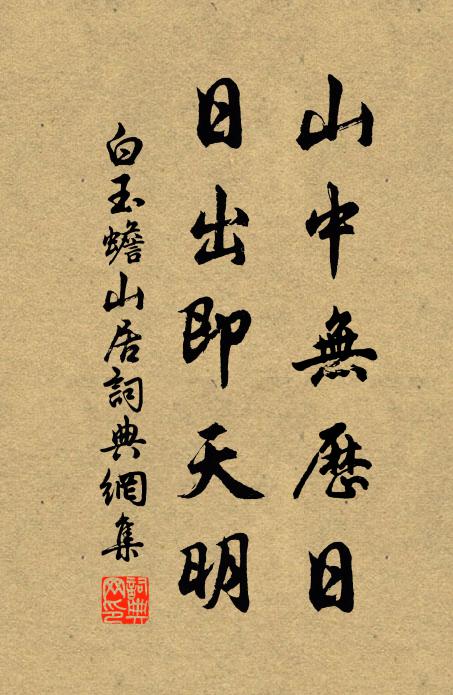 山中無歷日
日出即天明
白玉蟾山居詞典網集
詞典網印